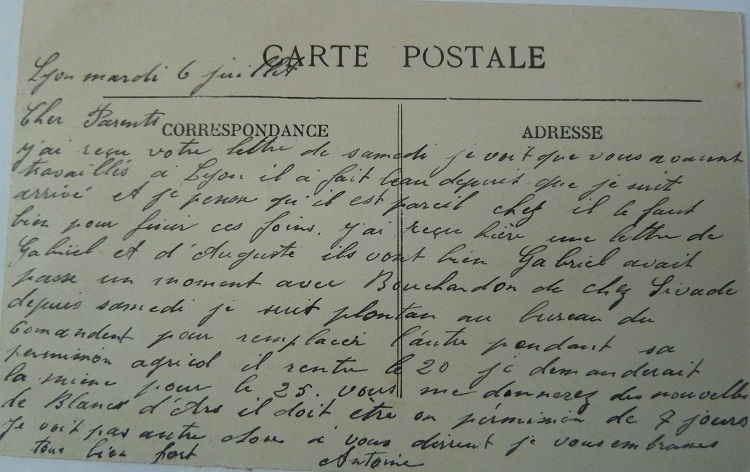 CARTE POSTALE
Lyon mardi 6 juillet
Cher Parents
CORRESPONDANCE
ADRESSE
j'ai reçu votre lettre de samedi je voit que vous avancent
travaillés a Lyon il a fait beau depuit que je suit
arrivé et je pense qu'il est pareil chez il le faut
bien pour finir ces foins. j'ai reçu hière une lettre de
Gabriel et d'Auguste ils vont bien Gabriel avait
passe un moment avec Bouchardon de chez Sivade
depuis samedi je suit planton au bureau du
Comandent pour remplacer l'autre pendant sa
permission agricol il rentre le 20 je demanderait
la mienne pour le 25. vous me donnerez des nouvelles
de Blanc d'Ars il doit etre en permission de 7 jours
Je voit pas autre chose a vous dirent je vous embrasse
tous bien fort
Antoine